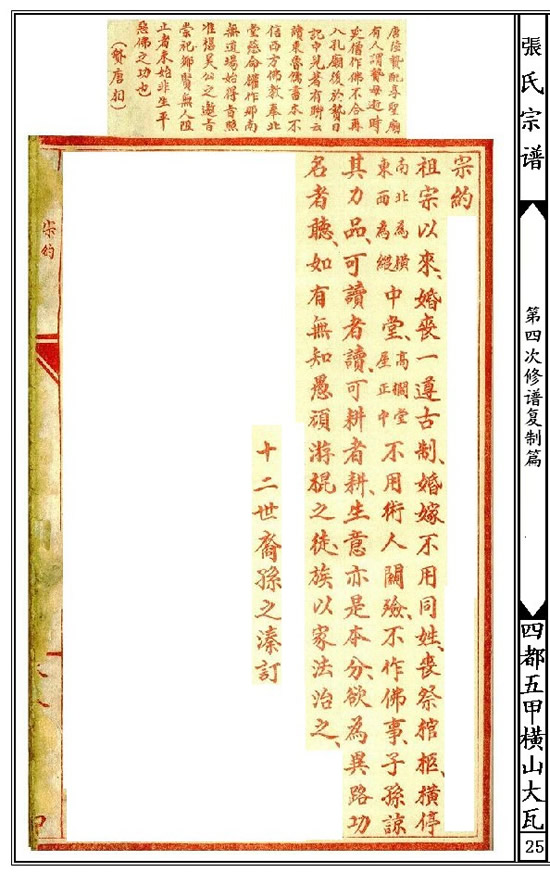 張氏宗谱
第四次修谱复制篇
四都五甲横山大瓦
25
唐陸贄配享聖廟
有人謂贄母逝時
延僧作佛不合再
入孔廟後於贄日
記中見著有聯云
讀東魯儒書本不
信西方佛教奉北
堂慈命權作那南
無道場始得旨照
准吳公之言
崇祀鄉賢無人阻
止者未始非生平
惡佛之功也
(贄唐相)
宗約
祖宗以來、婚喪一遵古制、婚嫁不用同姓、喪祭棺柩、橫停
南北為橫
東西為縱
中堂、
高擱堂
屋正中
不用術人關殮、不作佛事、子孫諒
其力品、可讀者讀、可耕者耕、生意亦是本分、欲為異路功
名者聽、如有無知愚頑游棍之徒、族以家法治之、
十二世裔孫之溱訂
宗約